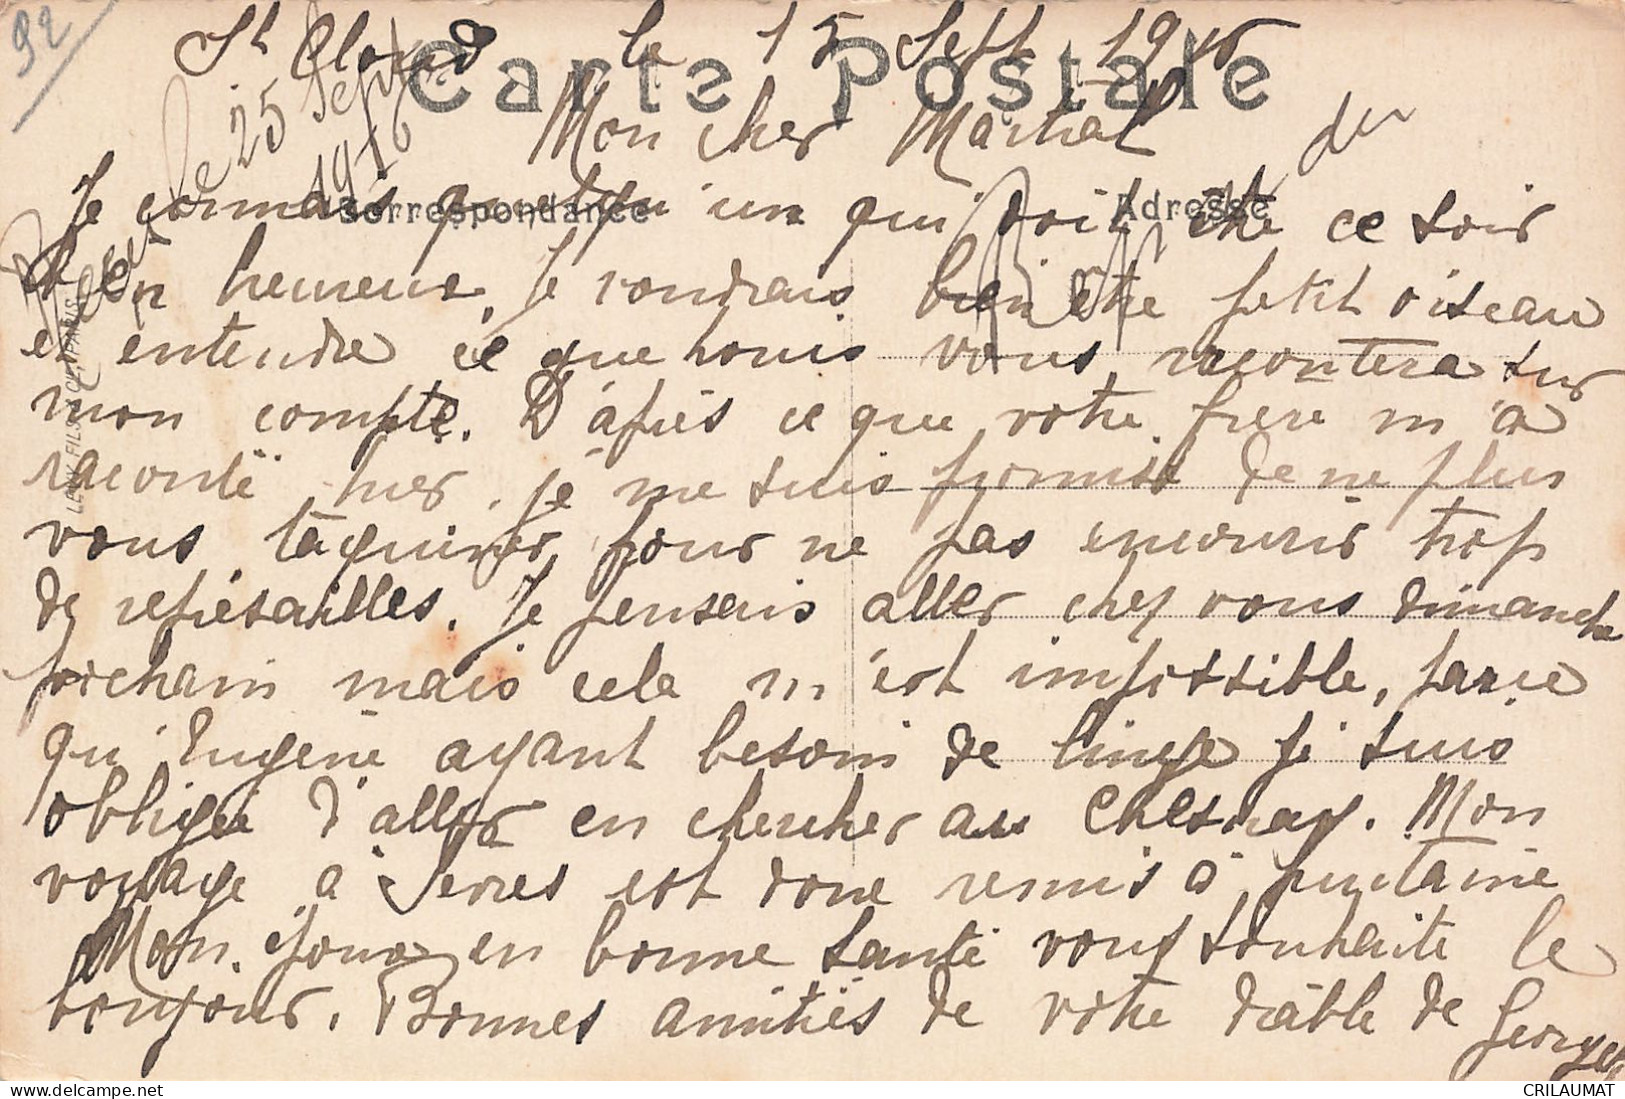 92
St Cloud le 15 Sept 1916
Carte Postale
Reçu le 25 Sept 1916
Mon cher Martial
Correspondance
Adresse
Je connais quelqu'un qui doit être ce soir
bien heureux, je voudrais bien être petit oiseau
et entendre ce que nous vous racontera sur
mon compte. D'après ce que votre frère m'a
raconté hier, je me suis promise de ne plus
vous taquiner, pour ne pas encourir trop
de représailles. Je pensais aller chez vous dimanche
prochain mais cela m'est impossible, parce
qu'Eugène ayant besoin de linge je suis
obligée d'aller en chercher au Chesnay. Mon
voyage à Sèvres est donc remis à quinzaine
Mon époux en bonne santé vous souhaite le
bonjour. Bonnes amitiés de votre diable de Georgette
LEVY FILS & CIE, PARIS
CRILAUMAT